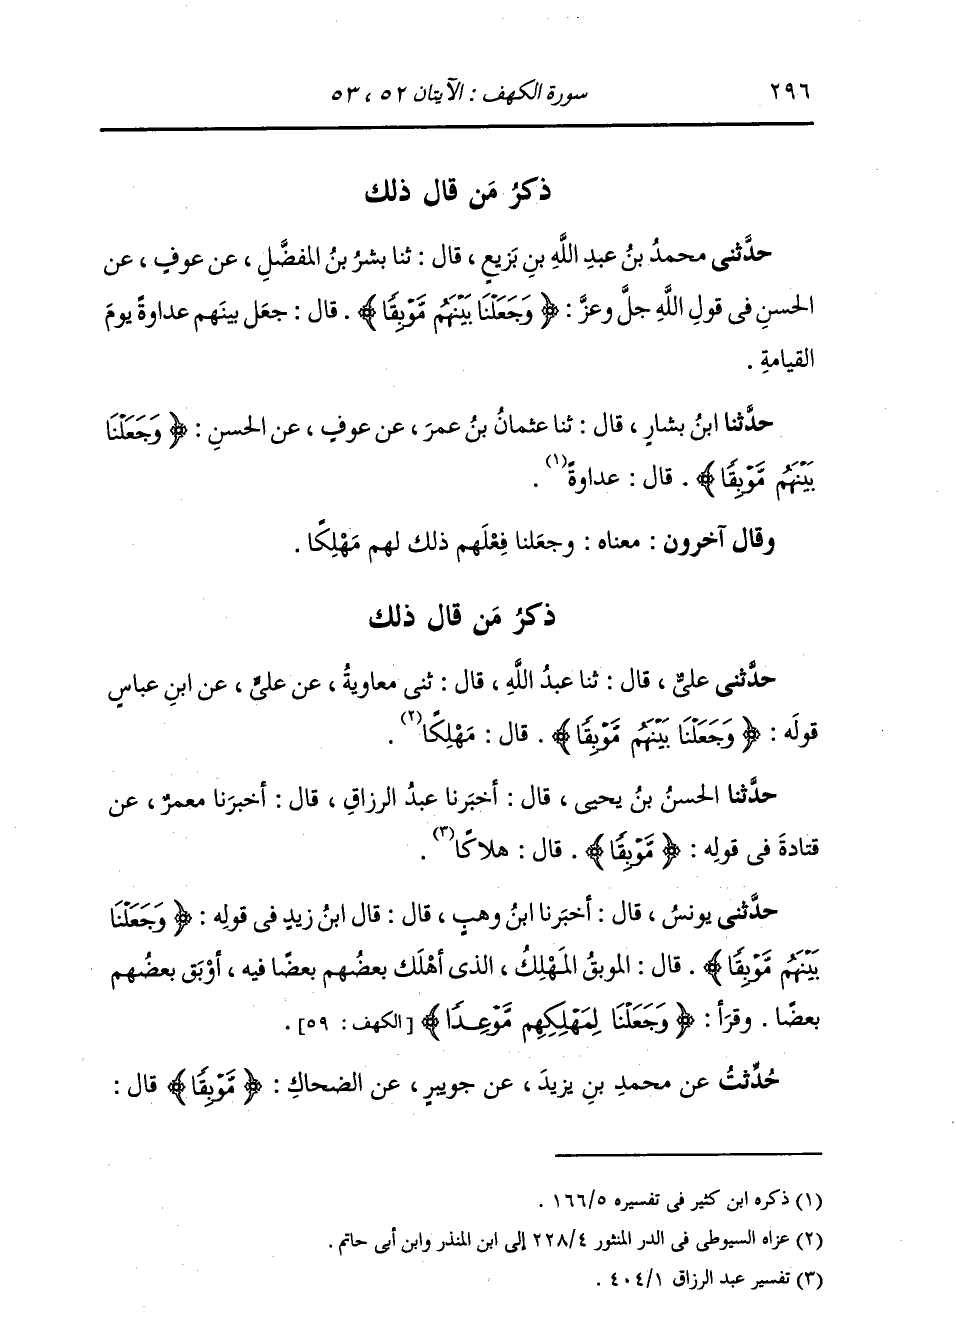 ٢٩٦ سورة الكهف : الآيتان ٥٢ ، ٥٣
ذكرُ مَن قال ذلك
حدَّثنى محمدُ بنُ عبدِ اللَّهِ بنِ بَزيعٍ ، قال : ثنا بشرُ بنُ المفضَّلِ ، عن عوفٍ ، عن
الحسنِ فى قولِ اللَّهِ جلَّ وعزَّ : ﴿ وَجَعَلْنَا بَيْنَهُم مَّوْبِقًا ﴾ . قال : جعَل بينَهم عداوةً يومَ
القيامةِ .
حدَّثنا ابنُ بشارٍ ، قال : ثنا عثمانُ بنُ عمرَ ، عن عوفٍ ، عن الحسنِ : ﴿ وَجَعَلْنَا
بَيْنَهُم مَّوْبِقًا ﴾ . قال : عداوةً(١) .
وقال آخرون : معناه : وجعَلنا فِعْلَهم ذلك لهم مَهْلِكًا .
ذكرُ مَن قال ذلك
حدَّثنى علىٌّ ، قال : ثنا عبدُ اللَّهِ ، قال : ثنى معاويةُ ، عن علىٍّ ، عن ابنِ عباسٍ
قولَه : ﴿ وَجَعَلْنَا بَيْنَهُم مَّوْبِقًا ﴾ . قال : مَهْلِكًا(٢) .
حدَّثنا الحسنُ بنُ يحيى ، قال : أخبَرنا عبدُ الرزاقِ ، قال : أخبَرَنا معمرٌ ، عن
قتادةَ فى قولِه : ﴿ مَّوْبِقًا ﴾ . قال : هلاكًا(٣) .
حدَّثنى يونسُ ، قال : أخبَرنا ابنُ وهبٍ ، قال : قال ابنُ زيدٍ فى قولِه : ﴿ وَجَعَلْنَا
بَيْنَهُم مَّوْبِقًا ﴾ . قال : الموبقُ المَهْلِكُ ، الذى أهْلَك بعضُهم بعضًا فيه ، أوْبَق بعضُهم
بعضًا . وقرَأ : ﴿ وَجَعَلْنَا لِمَهْلِكِهِم مَّوْعِدًا ﴾ [الكهف : ٥٩] .
حُدِّثتُ عن محمدِ بنِ يزيدَ ، عن جويبرٍ ، عن الضحاكِ : ﴿ مَّوْبِقًا ﴾ قال :
(١) ذكره ابن كثير فى تفسيره ١٦٦/٥ .
(٢) عزاه السيوطى فى الدر المنثور ٢٢٨/٤ إلى ابن المنذر وابن أبى حاتم .
(٣) تفسير عبد الرزاق ٤٠٤/١ .